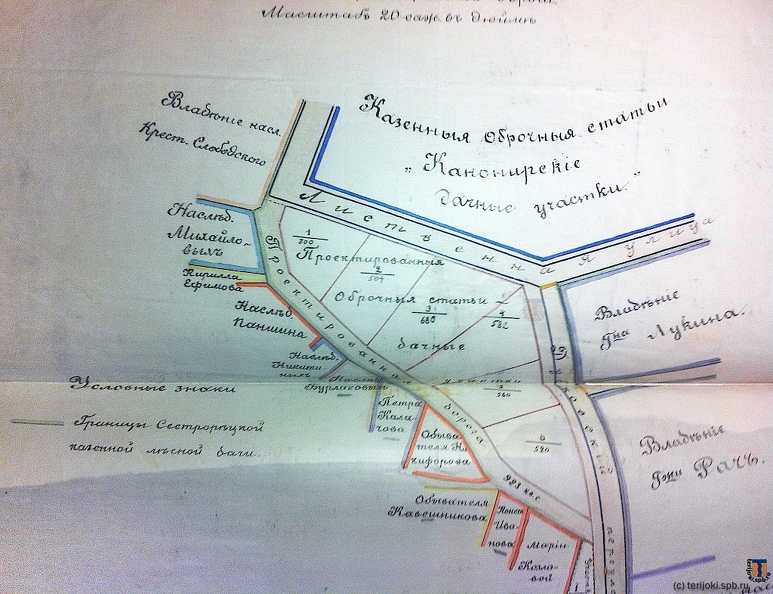 Масштабъ 20 саж. въ дюймѣ
Владѣніе насл.
Крест. Слободского
Казенныя Оброчныя статьи
„Канонирскіе
дачные участки."
Лиственная улица
Наслѣд.
Михайло-
выхъ
Кирилла
Ефимова
Наслѣд.
Паншина
Наслѣд.
Никити
ныхъ
Наслѣд.
Бурликовыхъ
Петра
Кала
чова
Обыва
теля Ни
кифорова
Обывателя
Кавешникова
Ива
нова
Маріи
Козло
вой
Проектированная
дорога
1
500
Проектированныя
2
504
Оброчныя статьи –
3
680
4
582
дачные
участки
5
560
6
520
983 кв с.
Владѣніе
Гна Лукина.
Владѣніе
Гжи Рачъ.
Условные знаки
Границы Сестрорѣцкой
казенной лѣсной дачи.
(c) terijoki.spb.ru